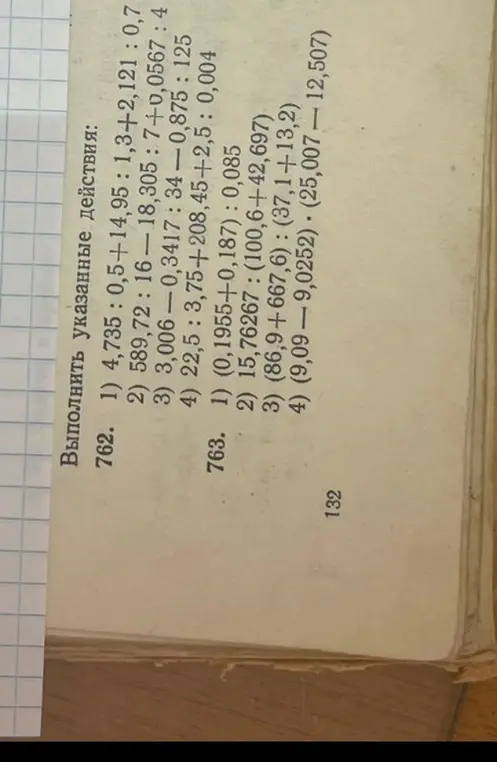 Выполнить указанные действия:
762. 1) 4,735 : 0,5+14,95 : 1,3+2,121 : 0,7
2) 589,72 : 16 — 18,305 : 7+0,0567 : 4
3) 3,006 — 0,3417 : 34 — 0,875 : 125
4) 22,5 : 3,75+208,45+2,5 : 0,004
763. 1) (0,1955+0,187) : 0,085
2) 15,76267 : (100,6+42,697)
3) (86,9+667,6) : (37,1+13,2)
4) (9,09 — 9,0252) · (25,007 — 12,507)
132